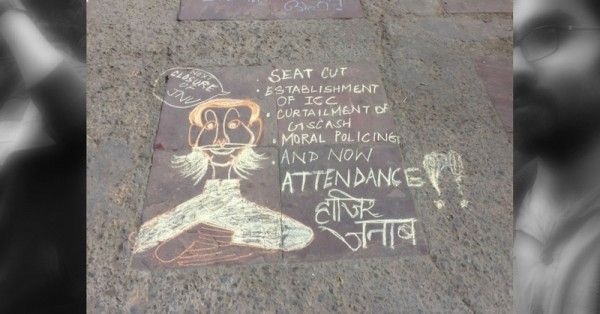 NEXT
CLOSURE
OF
JNU!
• SEAT CUT
• ESTABLISHMENT
OF ICC
• CURTAILMENT OF
GSCASH
• MORAL POLICING
AND NOW
ATTENDANCE!?!
हाज़िर
जनाब